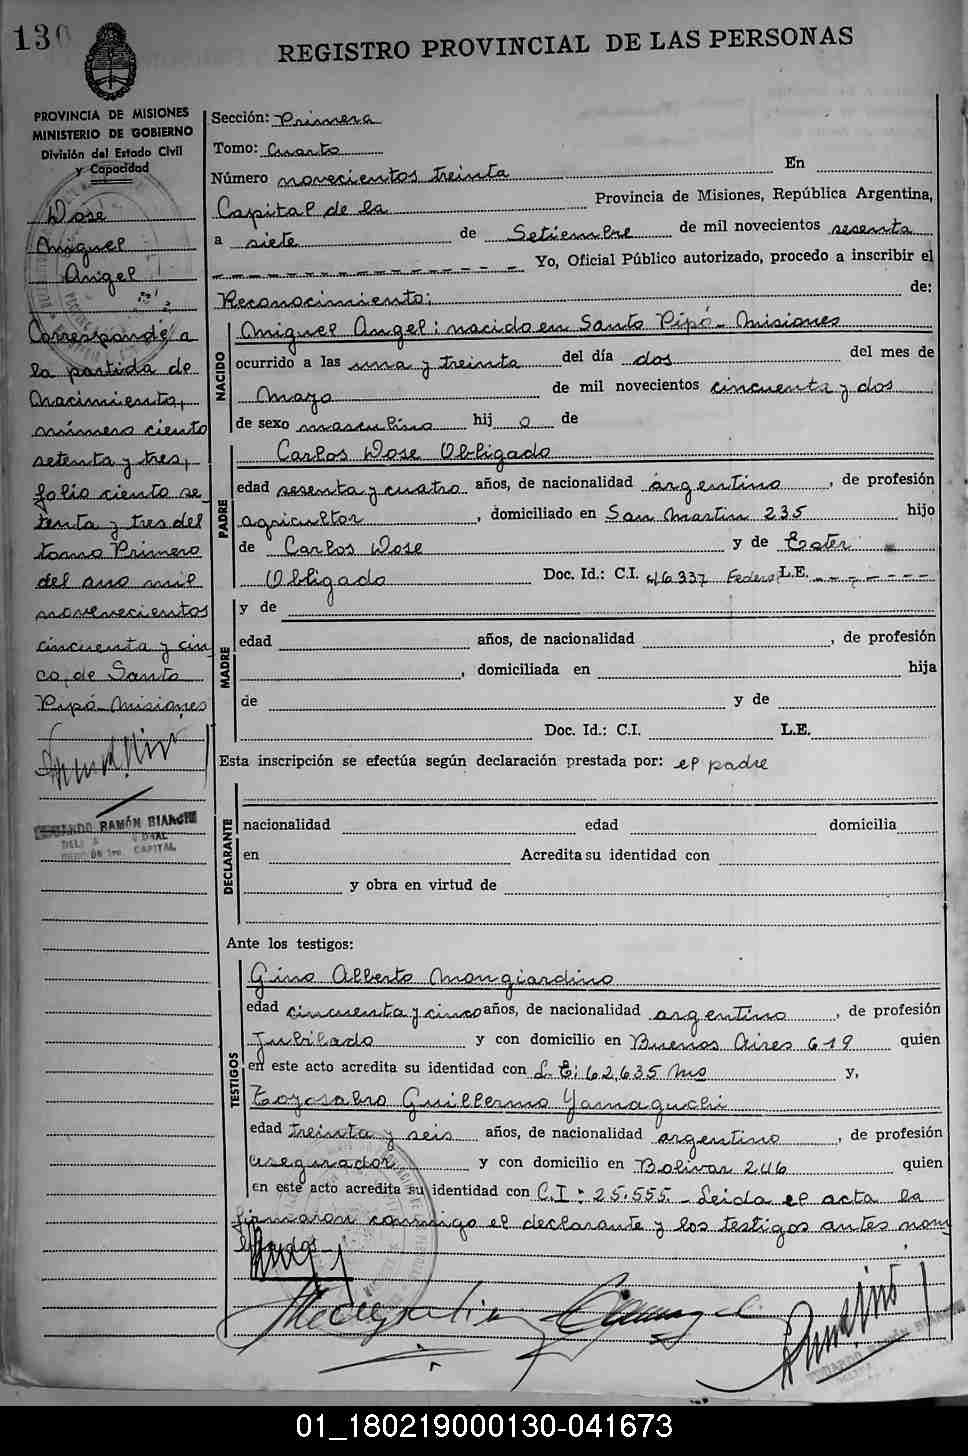 130
REGISTRO PROVINCIAL DE LAS PERSONAS
PROVINCIA DE MISIONES
MINISTERIO DE GOBIERNO
División del Estado Civil
y Capacidad
Dose
Miguel
Angel
Corresponde a
la partida de
Nacimiento,
número ciento
setenta y tres,
folio ciento se
tenta y tres del
tomo Primero
del ano mil
novenecientos
cincuenta y cin
co, de Santo
Pipó-Misiones
RAMÓN BIANCHI
CAPITAL
Sección: Primera
Tomo: Cuarto
Número novecientos treinta En
Capital de la Provincia de Misiones, República Argentina,
a siete de Setiembre de mil novecientos sesenta
Yo, Oficial Público autorizado, procedo a inscribir el
Reconocimiento: de:
NACIDO
Miguel Angel: nacido en Santo Pipó-Misiones
ocurrido a las una y treinta del día dos del mes de
Mayo de mil novecientos cincuenta y dos
de sexo masculino hij o de
PADRE
Carlos Dose Obligado
edad sesenta y cuatro años, de nacionalidad argentino, de profesión
agricultor, domiciliado en San Martin 235 hijo
de Carlos Dose y de Ester
Obligado Doc. Id.: C.I. 416337 Federal L.E.
MADRE
y de
edad años, de nacionalidad , de profesión
, domiciliada en hija
de y de
Doc. Id.: C.I. L.E.
Esta inscripción se efectúa según declaración prestada por: el padre
DECLARANTE
nacionalidad edad domicilia
en Acredita su identidad con
y obra en virtud de
Ante los testigos:
TESTIGOS
Gino Alberto Mongiardino
edad cincuenta y cinco años, de nacionalidad argentino, de profesión
Jubilado y con domicilio en Buenos Aires 619 quien
en este acto acredita su identidad con L.E: 62,635 Mns y,
Toyosabro Guillermo Yamaguchi
edad treinta y seis años, de nacionalidad argentino, de profesión
asegurador y con domicilio en Bolivar 246 quien
en este acto acredita su identidad con C.I: 25.555.-Leida el acta la
firmaron conmigo el declarante y los testigos antes nom
brados.-
01_180219000130-041673